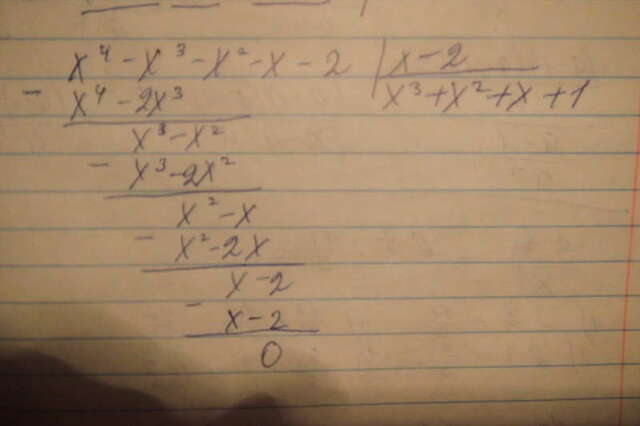 x⁴ - x³ - x² - x - 2 | x - 2
- x⁴ - 2x³
x³ + x² + x + 1
x³ - x²
- x³ - 2x²
x² - x
- x² - 2x
x - 2
- x - 2
0